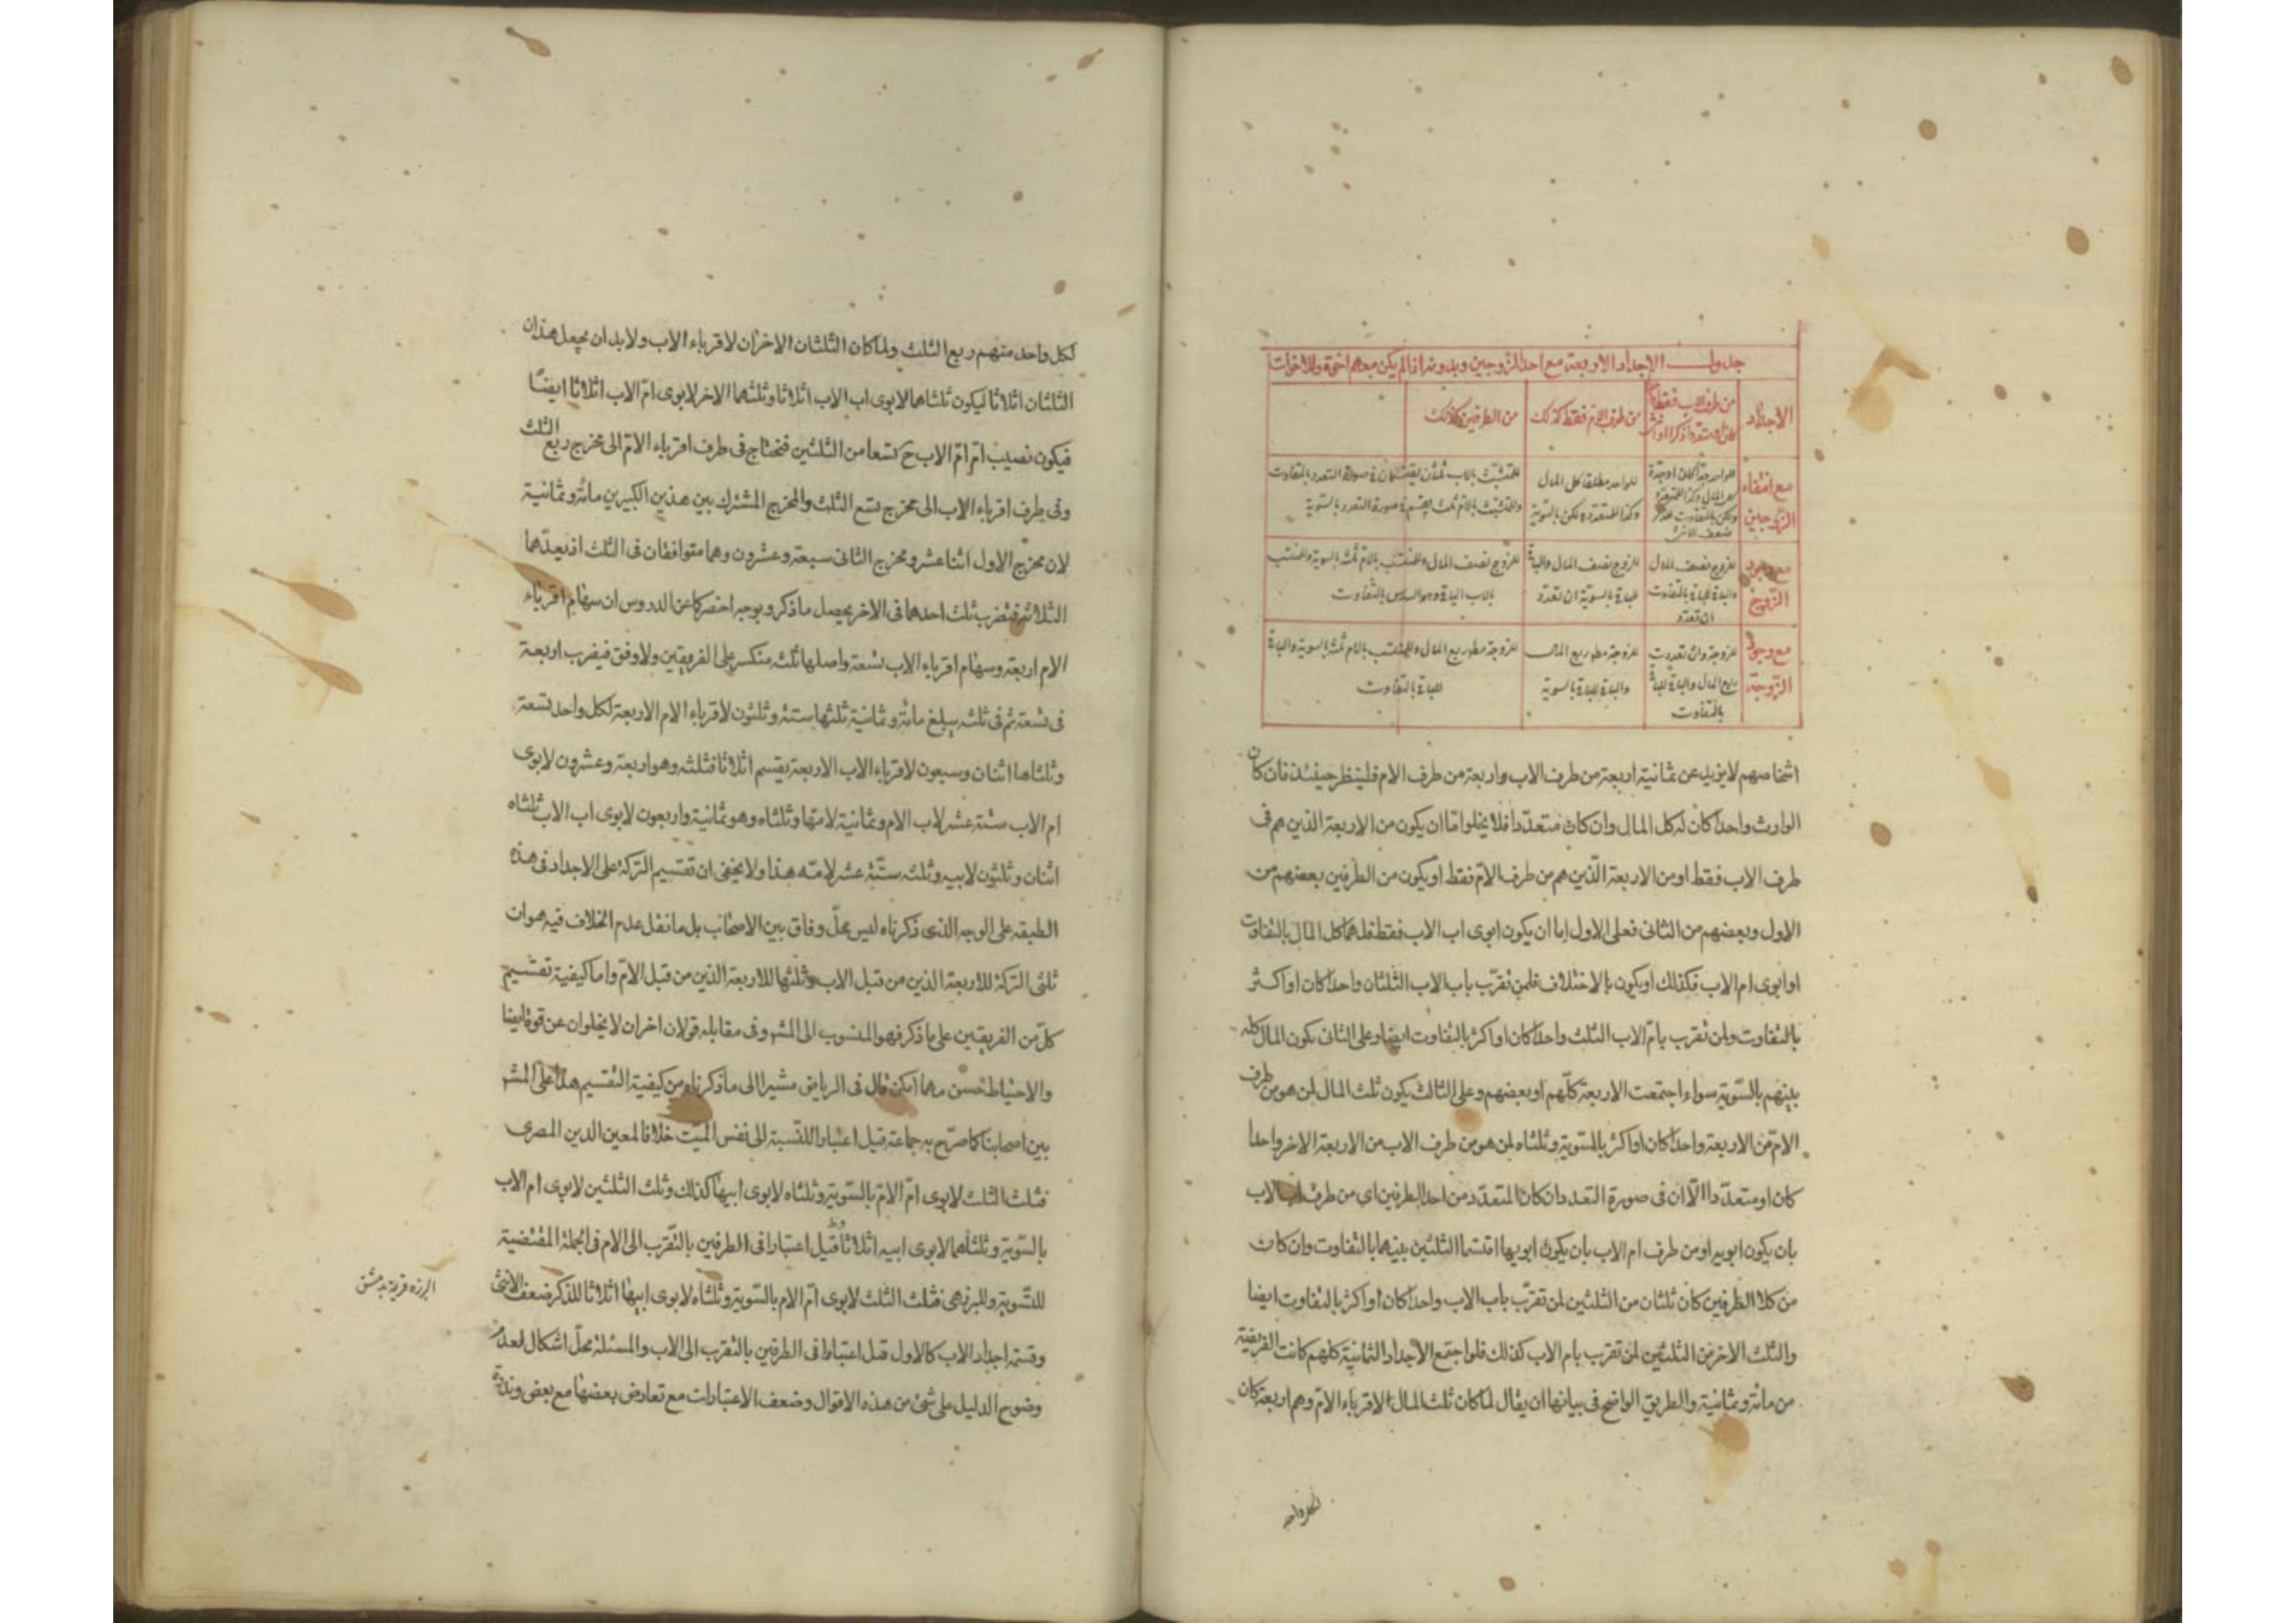 جدول الاجداد الاربعة مع احد الزوجين وبدونه اذا لم يكن معهم اخوة ولا اخوات
الاجداد
من طرف الاب فقط
من طرف الام فقط كذلك
من الطرفين كذلك
مع انتفاء الزوجين
للواحد مطلقا كل المال
وكذا للمتعدد لكن بالسوية
مع وجود الزوج
للزوج نصف المال والباقي للباقي بالتفاوت ان تعدد
للزوج نصف المال والباقي للباقي بالسوية ان تعدد
للزوج نصف المال وللمنتسب بالام ثلث بالسوية وللمنتسب
بالاب الباقي وهو السدس بالتفاوت
مع وجود الزوجة
للزوجة وان تعددت ربع المال والباقي للباقي بالتفاوت
للزوجة مطلقا ربع المال والباقي للباقي بالسوية
للزوجة مطلقا ربع المال وللمنتسب بالام ثلث بالسوية والباقي
للباقي بالتفاوت
اشخاصهم لا يزيد عن ثمانية اربعة من طرف الاب واربعة من طرف الام فلينظر حينئذ فان كان
الوارث واحدا كان له كل المال وان كان متعددا فلا يخلوا اما ان يكون من الاربعة الذين هم فى
طرف الاب فقط او من الاربعة الذين هم من طرف الام فقط او يكون من الطرفين بعضهم من
الاول وبعضهم من الثانى فعلى الاول اما ان يكون ابوى اب الاب فقط فلهما كل المال بالتفاوت
او ابوى ام الاب فكذلك او يكون بالاختلاف فلمن تقرب باب الاب الثلثان واحدا كان او اكثر
بالتفاوت ولمن تقرب بام الاب الثلث واحدا كان او اكثر بالتفاوت ايضا وعلى الثانى يكون المال كله
بينهم بالسوية سواء اجتمعت الاربعة كلهم او بعضهم وعلى الثالث يكون ثلث المال لمن هو من طرف
الام من الاربعة واحدا كان او اكثر بالسوية وثلثاه لمن هو من طرف الاب من الاربعة الاخر واحدا
كان او متعددا الا ان فى صورة التعدد ان كان المتعدد من احد الطرفين اى من طرف اب الاب
بان يكون ابويه او من طرف ام الاب بان يكون ابويها اقتسما الثلثين بينهما بالتفاوت وان كان
من كلا الطرفين كان ثلثان من الثلثين لمن تقرب باب الاب واحدا كان او اكثر بالتفاوت ايضا
والثلث الاخر من الثلثين لمن تقرب بام الاب كذلك فلو اجتمع الاجداد الثمانية كلهم كانت الفريضة
من مائة وثمانية والطريق الواضح فى بيانها ان يقال لما كان ثلث المال لاقرباء الام وهم اربعة كان
لكل واحد
لكل واحد منهم ربع الثلث ولما كان الثلثان الاخران لاقرباء الاب ولا بد ان يجعل هذان
الثلثان اثلاثا ليكون ثلثاهما لابوى اب الاب اثلاثا وثلثهما الاخر لابوى ام الاب اثلاثا ايضا
فيكون نصيب ام ام الاب ح تسعا من الثلثين فنحتاج فى طرف اقرباء الام الى مخرج ربع الثلث
وفى طرف اقرباء الاب الى مخرج تسع الثلث والمخرج المشترك بين هذين الكسرين مائة وثمانية
لان مخرج الاول اثنا عشر ومخرج الثانى سبعة وعشرون وهما متوافقان فى الثلث اذ يعدهما
الثلاثة فنضرب ثلث احدهما فى الاخر يحصل ما ذكر وبوجه اخصر كما عن الدروس ان سهام اقرباء
الام اربعة وسهام اقرباء الاب تسعة واصلها ثلثه منكسر على الفريقين ولا وفق فيضرب اربعة
فى تسعة ثم فى ثلثه يبلغ مائة وثمانية ثلثها ستة وثلثون لاقرباء الام الاربعة لكل واحد تسعة
وثلثاها اثنان وسبعون لاقرباء الاب الاربعة يقسم اثلاثا فثلثه وهو اربعة وعشرون لابوى
ام الاب ستة عشر لاب الام وثمانية لامها وثلثاه وهو ثمانية واربعون لابوى اب الاب ثلثاه
اثنان وثلثون لابيه وثلثه ستة عشر لامه هذا ولا يخفى ان تقسيم التركة على الاجداد فى هذه
الطبقه على الوجه الذى ذكرناه ليس محل وفاق بين الاصحاب بل ما نقل عدم الخلاف فيه هو ان
ثلثى التركة للاربعة الذين من قبل الاب وثلثها للاربعة الذين من قبل الام واما كيفية تقسيم
كل من الفريقين على ما ذكر فهو المنسوب الى المشهور وفى مقابله قولان اخران لا يخلوان عن قوة ايضا
والاحتياط حسن مهما امكن قال فى الرياض مشيرا الى ما ذكرناه من كيفية التقسيم هذا على المشهور
بين اصحابنا كما صرح به جماعة قيل اعتبارا للنسبة الى نفس الميت خلافا لمعين الدين المصرى
فثلث الثلث لابوى ام الام بالسوية وثلثاه لابوى ابيها كذلك وثلث الثلثين لابوى ام الاب
بالسوية وثلثاهما لابوى ابيه اثلاثا قيل اعتبارا فى الطرفين بالتقرب الى الام فى الجملة المقتضية
للتسوية وللبرزهى فثلث الثلث لابوى ام الام بالسوية وثلثاه لابوى ابيها اثلاثا للذكر ضعف الانثى
وقسمة اجداد الاب كالاول قيل اعتبارا فى الطرفين بالتقرب الى الاب والمسئلة محل اشكال لعدم
وضوح الدليل على شئ من هذه الاقوال وضعف الاعتبارات مع تعارض بعضها مع بعض وندرة
البرزه قرية بدمشق